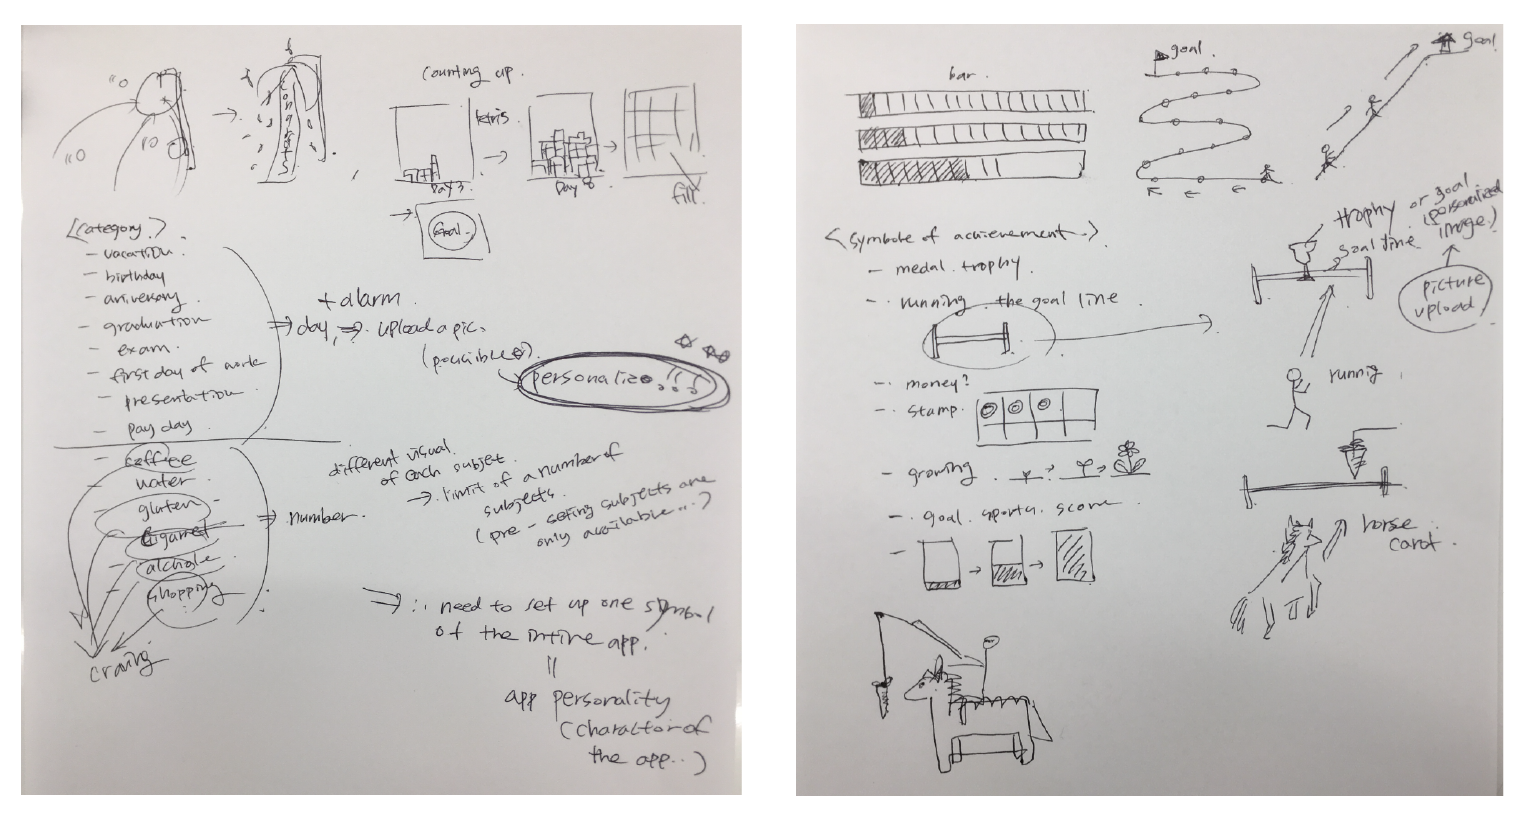 congrats
counting up.
tetris.
Day 3
Day 8
fill.
Goal.
<category.>
- vacation.
- birthday
- aniversary.
- graduation
- exam.
- first day of work
- presentation
- pay day.
+ alarm.
⇒ day, ⇒ upload a pic.
(possible).
personalize!!!
- coffee
water
- gluten
- cigarret
- alchole
- shopping
⇒ number.
different visual
of each subject.
→ limit of a number of
subjects.
(pre - seting subjects are
only available...)
craving
⇒ ∴ need to set up one symbol
of the intire app.
=
app personality
(charactor of
the app..)
bar.
goal.
goal
<symbole of achievement.>
- medal. trophy.
- running the goal line.
- money?
- stamp.
- growing
- goal. sports. score
trophy or goal
(personalized
image.)
goal line
picture
upload
running
horse
carot.